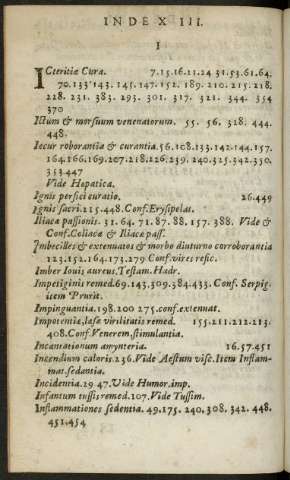 INDEX III.
I
ICteritiæ Cura. 7.15.16.21.24 31.53.61.64.
70.133 143. 145.147.152. 189. 210. 215. 218.
228. 231. 383. 293. 301. 317. 321. 344. 354
370
Ictum & morsuum venenatorum. 55. 56. 328. 444.
448.
Iecur roborantia & curantia. 56.108.133.142.144.157.
164.166.169.207.218.226.239. 240.325.342.350.
353 447
Vide Hepatica.
Ignis persici curatio. 26.449
Ignis sacri. 215.448. Conf. Erysipelat.
Iliaca passionis. 31. 64. 71. 87. 88. 157. 388. Vide &
Conf. Coliacæ & Iliacæ pass.
Imbecilles & extenuatos & morbo diuturno corroborantia
123.152.164.173.279 Conf. vires refic.
Imber Iouis aureus, Testam. Hadr.
Impetiginis remed. 69.143.309.384.433. Conf. Serpig.
item Prurit.
Impinguantia. 198. 200 275. conf. extenuat.
Impotentiæ, læsæ virilitatis remed. 155.211.212.213.
408. Conf. Venerem, stimulantia.
Incantationum amynteria. 16.57.451
Incendium caloris. 236. Vide Aestum visc. Item Inflam-
mat. sedantia.
Incidentia. 29 47. Vide Humor. imp.
Infantum tussis remed. 107. Vide Tussim.
Inflammationes sedentia. 49.175. 240. 308. 342. 448.
451.454